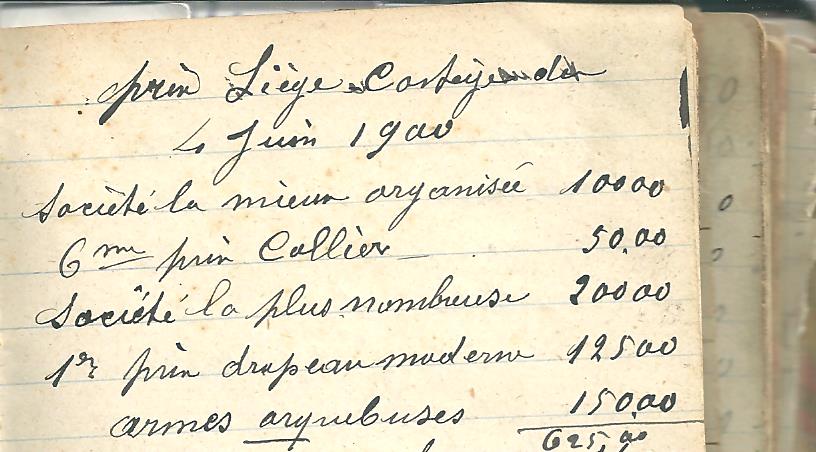 prix Liège Cortège du
4 Juin 1900
Société la mieux organisée 10000
6me prix Collier 50.00
Société la plus nombreuse 20000
1er prix drapeau moderne 12500
armes arquebuses 150.00
625,00